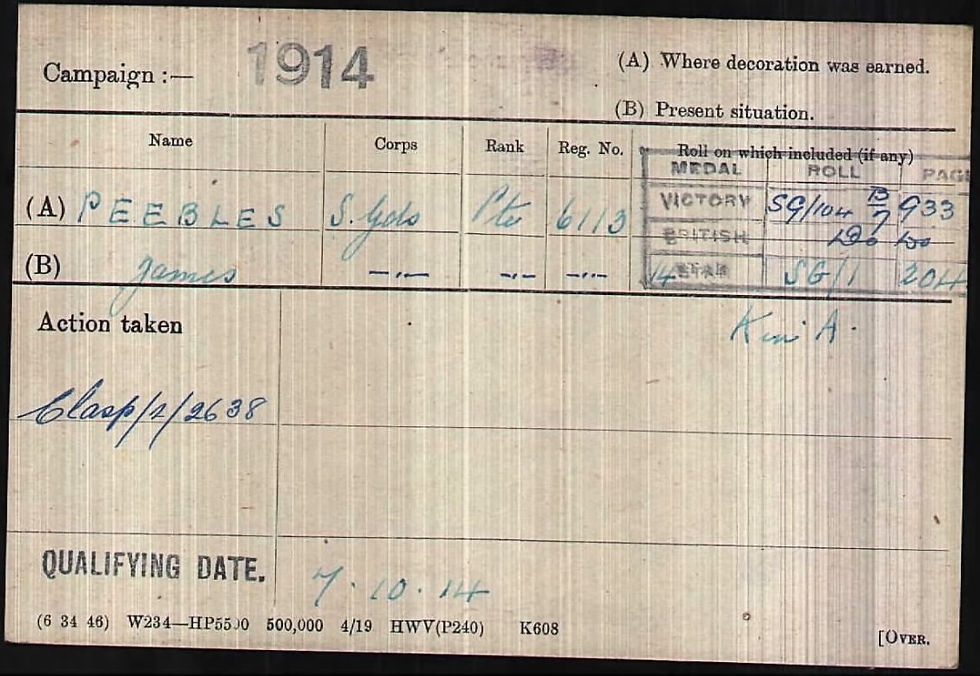 Campaign :— 1914
(A) Where decoration was earned.
(B) Present situation.
Name Corps Rank Reg. No. Roll on which included (if any)
MEDAL ROLL PAGE
(A) PEEBLES S. Gds Pte 6113 VICTORY SG/104 B/7 933
BRITISH Do Do
(B) James —"— —"— —"— 14 STAR SG/1 204
Action taken
K in A.
Clasp/1/2638
QUALIFYING DATE. 7.10.14
(6 34 46) W234—HP5500 500,000 4/19 HWV(P240) K608
[OVER.